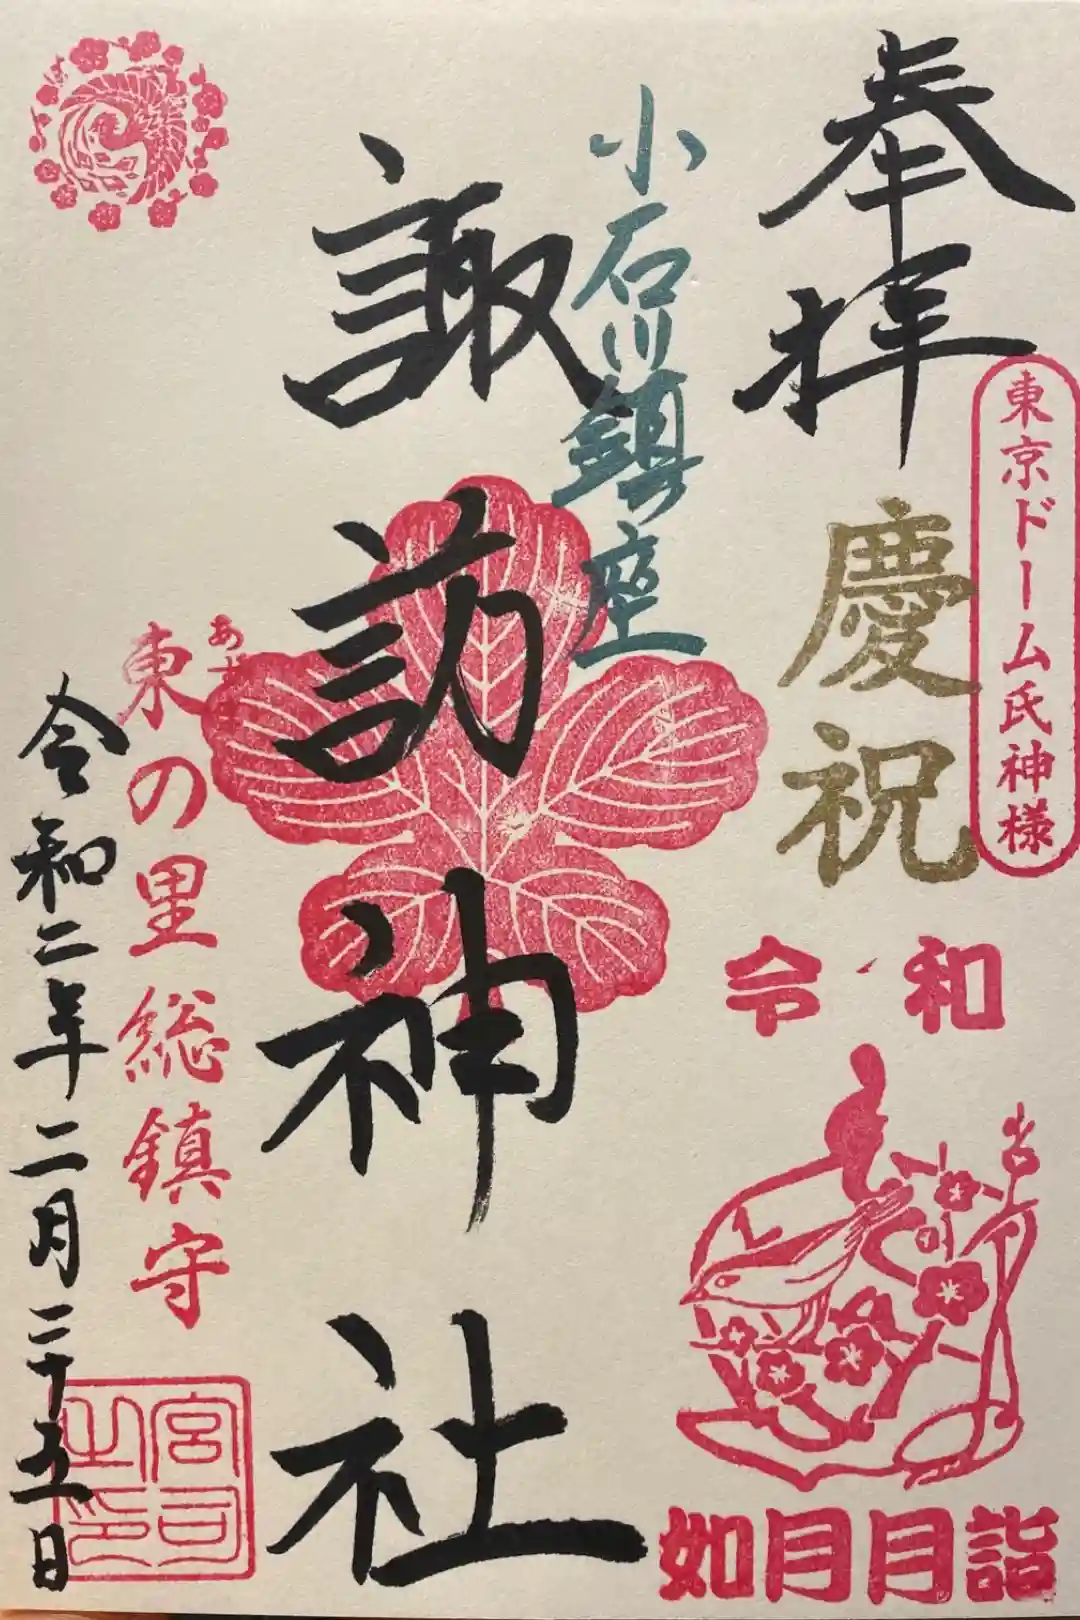 奉拝
東京ドーム氏神様
慶祝
令和
如月月詣
小石川鎮座
諏訪神社
東の里総鎮守
令和二年二月二十五日
宮司之印